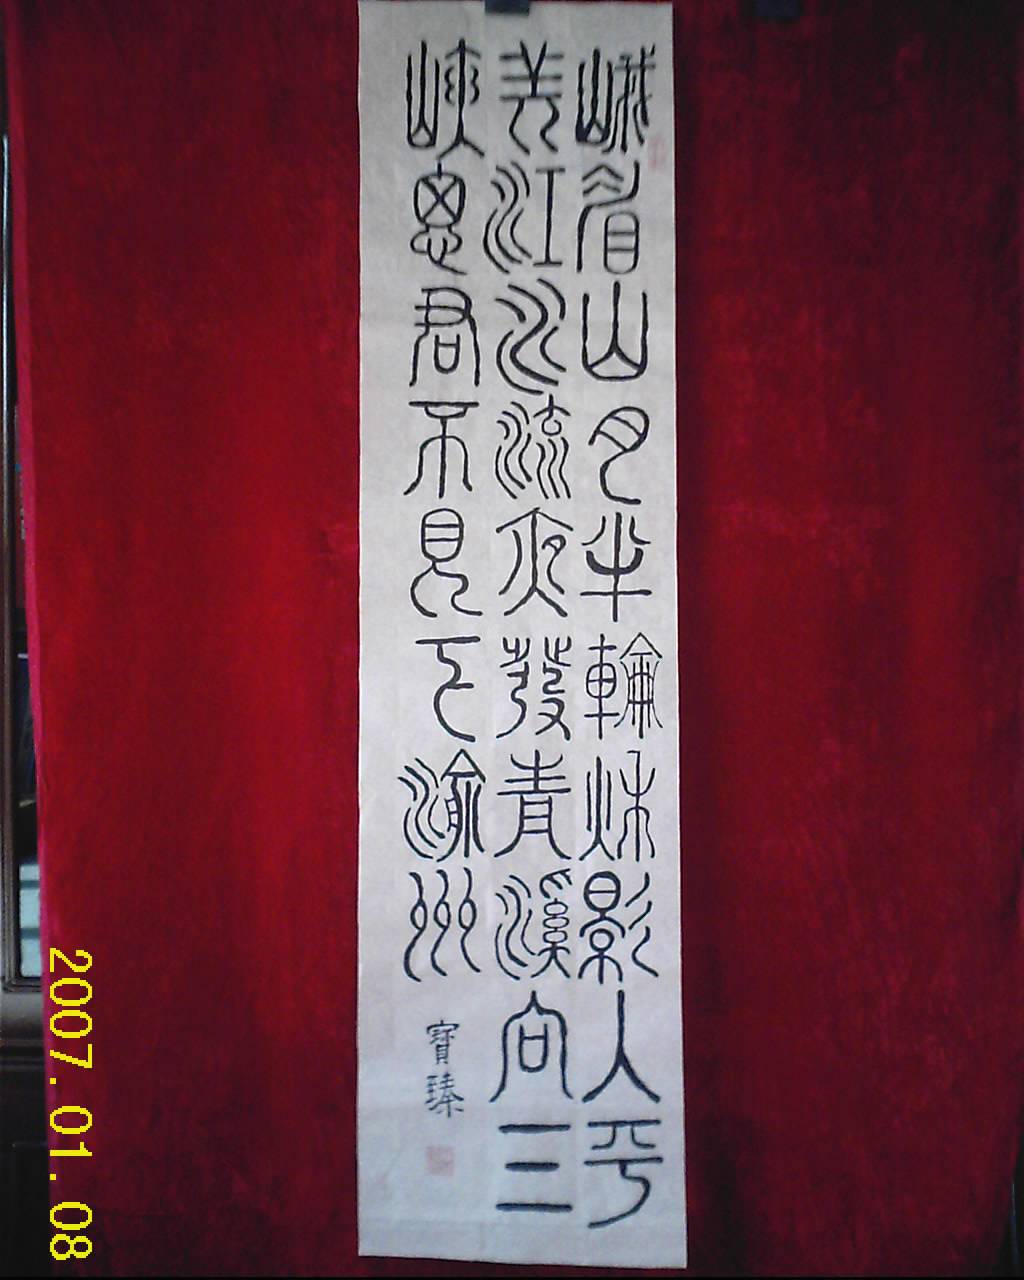 峨眉山月半輪秌影入平
羌江水流夜發青溪向三
峽思君不見下渝州
寶臻
2007.01.08